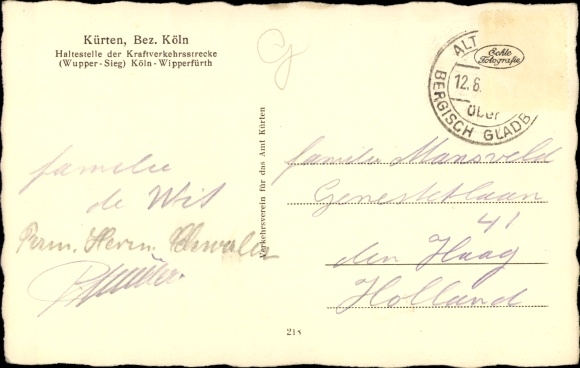 Kürten, Bez. Köln
Haltestelle der Kraftverkehrsstrecke
(Wupper-Sieg) Köln-Wipperfürth
ALT
Echte
Fotografie
12.6.
über
BERGISCH GLADB
Verkehrsverein für das Amt Kürten
familie
de Wit
Herm.
familie Mansveld
Genestetlaan
41
den Haag
Holland
218